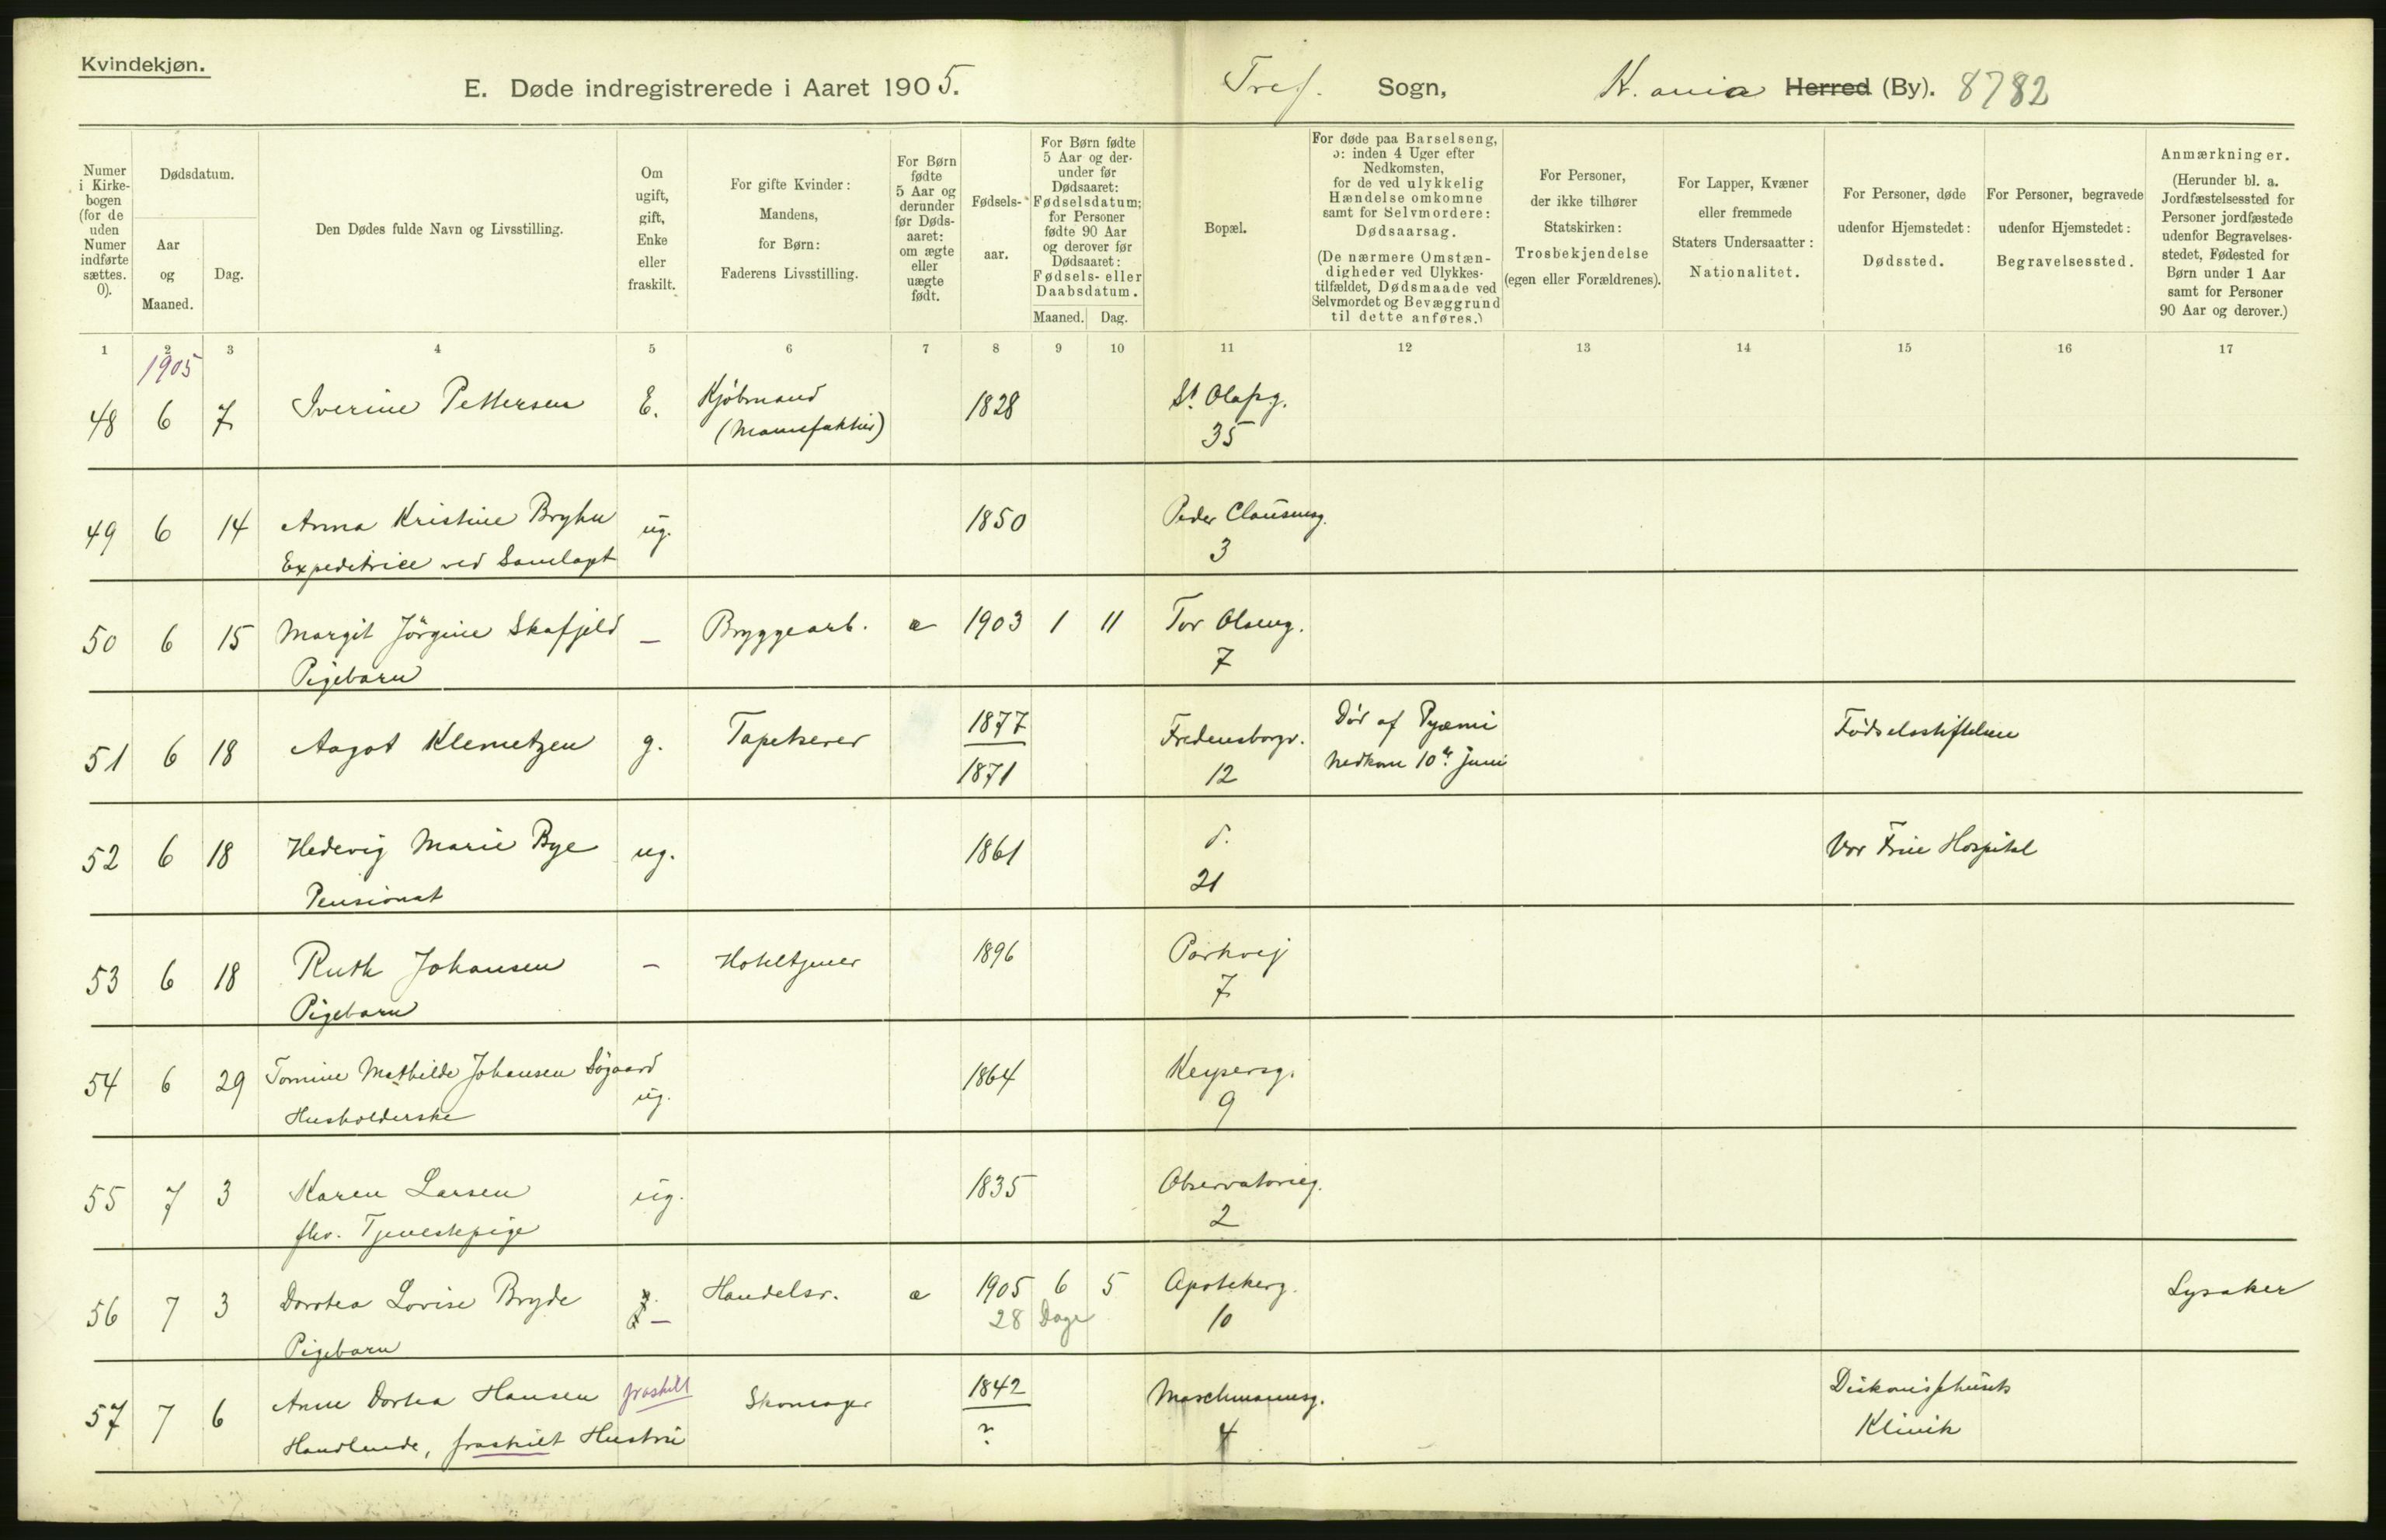 Kvindekjøn.
E. Døde indregistrerede i Aaret 1905. Tref. Sogn, K.ania Herred (By). 8782
Numer i Kirkebogen (for de uden Numer indførte sættes. 0).
Dødsdatum.
Aar og Maaned.
Dag.
Den Dødes fulde Navn og Livsstilling.
Om ugift, gift, Enke eller fraskilt.
For gifte Kvinder: Mandens, for Børn: Faderens Livsstilling.
For Børn fødte 5 Aar og derunder før Dødsaaret: om ægte eller uægte født.
Fødselsaar.
For Børn fødte 5 Aar og derunder før Dødsaaret: Fødselsdatum; for Personer fødte 90 Aar og derover før Dødsaaret: Fødsels- eller Daabsdatum.
Maaned. Dag.
Bopæl.
For døde paa Barselseng, ɔ: inden 4 Uger efter Nedkomsten, for de ved ulykkelig Hændelse omkomne samt for Selvmordere: Dødsaarsag.
(De nærmere Omstændigheder ved Ulykkestilfældet, Dødsmaade ved Selvmordet og Bevæggrund til dette anføres.)
For Personer, der ikke tilhører Statskirken: Trosbekjendelse (egen eller Forældrenes).
For Lapper, Kvæner eller fremmede Staters Undersaatter: Nationalitet.
For Personer, døde udenfor Hjemstedet: Dødssted.
For Personer, begravede udenfor Hjemstedet: Begravelsessted.
Anmærkninger.
(Herunder bl. a. Jordfæstelsessted for Personer jordfæstede udenfor Begravelsesstedet, Fødested for Børn under 1 Aar samt for Personer 90 Aar og derover.)
1 2 3 4 5 6 7 8 9 10 11 12 13 14 15 16 17
1905
48 6 7 Iverine Pettersen E. Kjöbmand 1828 St. Olafsg.
(Manufaktur) 35
49 6 14 Anna Kristine Bryhn ug. 1850 Peder Clausensg.
Expeditrice ved Samlaget 3
50 6 15 Margit Jörgine Skafjeld — Bryggearb. æ 1903 1 11 Tor Olsensg.
Pigebarn 7
51 6 18 Aagot Klemetzen g. Tapetserer 1877 Fredensborgv. Död af Pyæmi Födselsstiftelsen
1871 12 Nedkom 10de Juni
52 6 18 Hedevig Marie Bye ug. 1861 d. Vor Frue Hospital
Pensionat 21
53 6 18 Ruth Johansen — Hoteltjener 1896 Parkvej
Pigebarn 7
54 6 29 Tomine Mathilde Johansen Sögaard ug. 1864 Keysersg.
Husholderske 9
55 7 3 Karen Larsen ug. 1835 Observatorieg.
fhv. Tjenestepige 2
56 7 3 Dorotea Lovise Bryde — Handelsr. æ 1905 6 5 Apothekerg. Lysaker
Pigebarn 28 Dage 10
57 7 6 Anne Dortea Hansen fraskilt Skomager 1842 Maschmannsg. Diakonissehusets
Handlende, fraskilt Hustru ? 4 Klinik